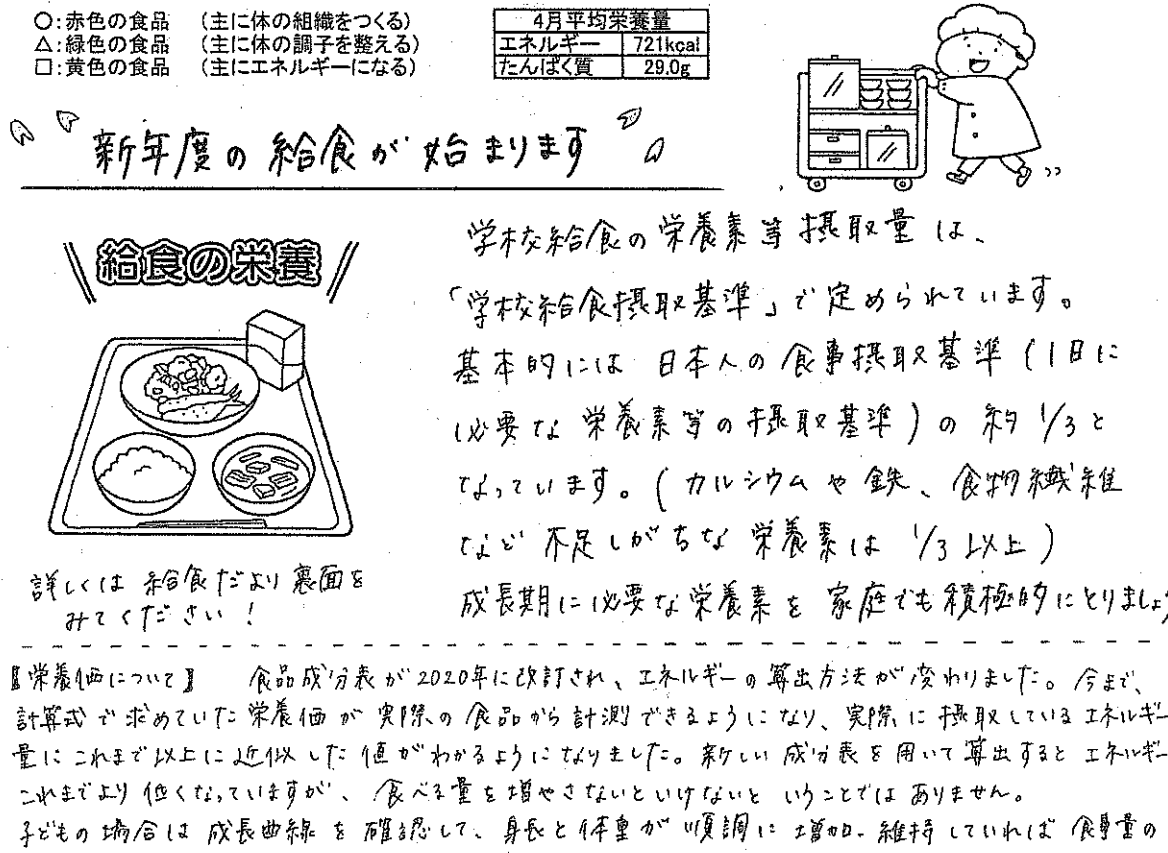 ○:赤色の食品　(主に体の組織をつくる)
△:緑色の食品　(主に体の調子を整える)
□:黄色の食品　(主にエネルギーになる)
4月平均栄養量
エネルギー　721kcal
たんぱく質　29.0g
新年度の給食が始まります
給食の栄養
詳しくは給食だより裏面を
みてください!
学校給食の栄養素等摂取量は、
「学校給食摂取基準」で定められています。
基本的には日本人の食事摂取基準(1日に
必要な栄養素等の摂取基準)の約1/3と
なっています。(カルシウムや鉄、食物繊維
など不足しがちな栄養素は1/3以上)
成長期に必要な栄養素を家庭でも積極的にとりましょう
【栄養価について】　食品成分表が2020年に改訂され、エネルギーの算出方法が変わりました。今まで、
計算式で求めていた栄養価が実際の食品から計測できるようになり、実際に摂取しているエネルギー
量にこれまで以上に近似した値がわかるようになりました。新しい成分表を用いて算出するとエネルギー
これまでより低くなっていますが、食べる量を増やさないといけないということではありません。
子どもの場合は成長曲線を確認して、身長と体重が順調に増加・維持していれば食事量の